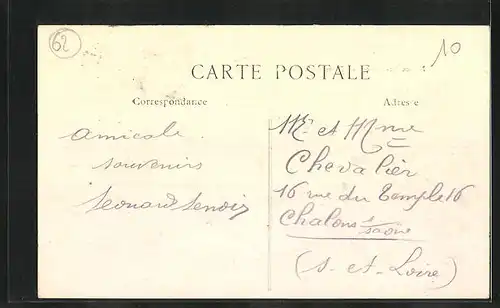 62
10
CARTE POSTALE
Correspondance
Adresse
amicale
souvenirs
Leonard Lenoir
Mr et Mme
Chevalier
16 rue du Temple 16
Chalons s/
saone
(S-et-Loire)